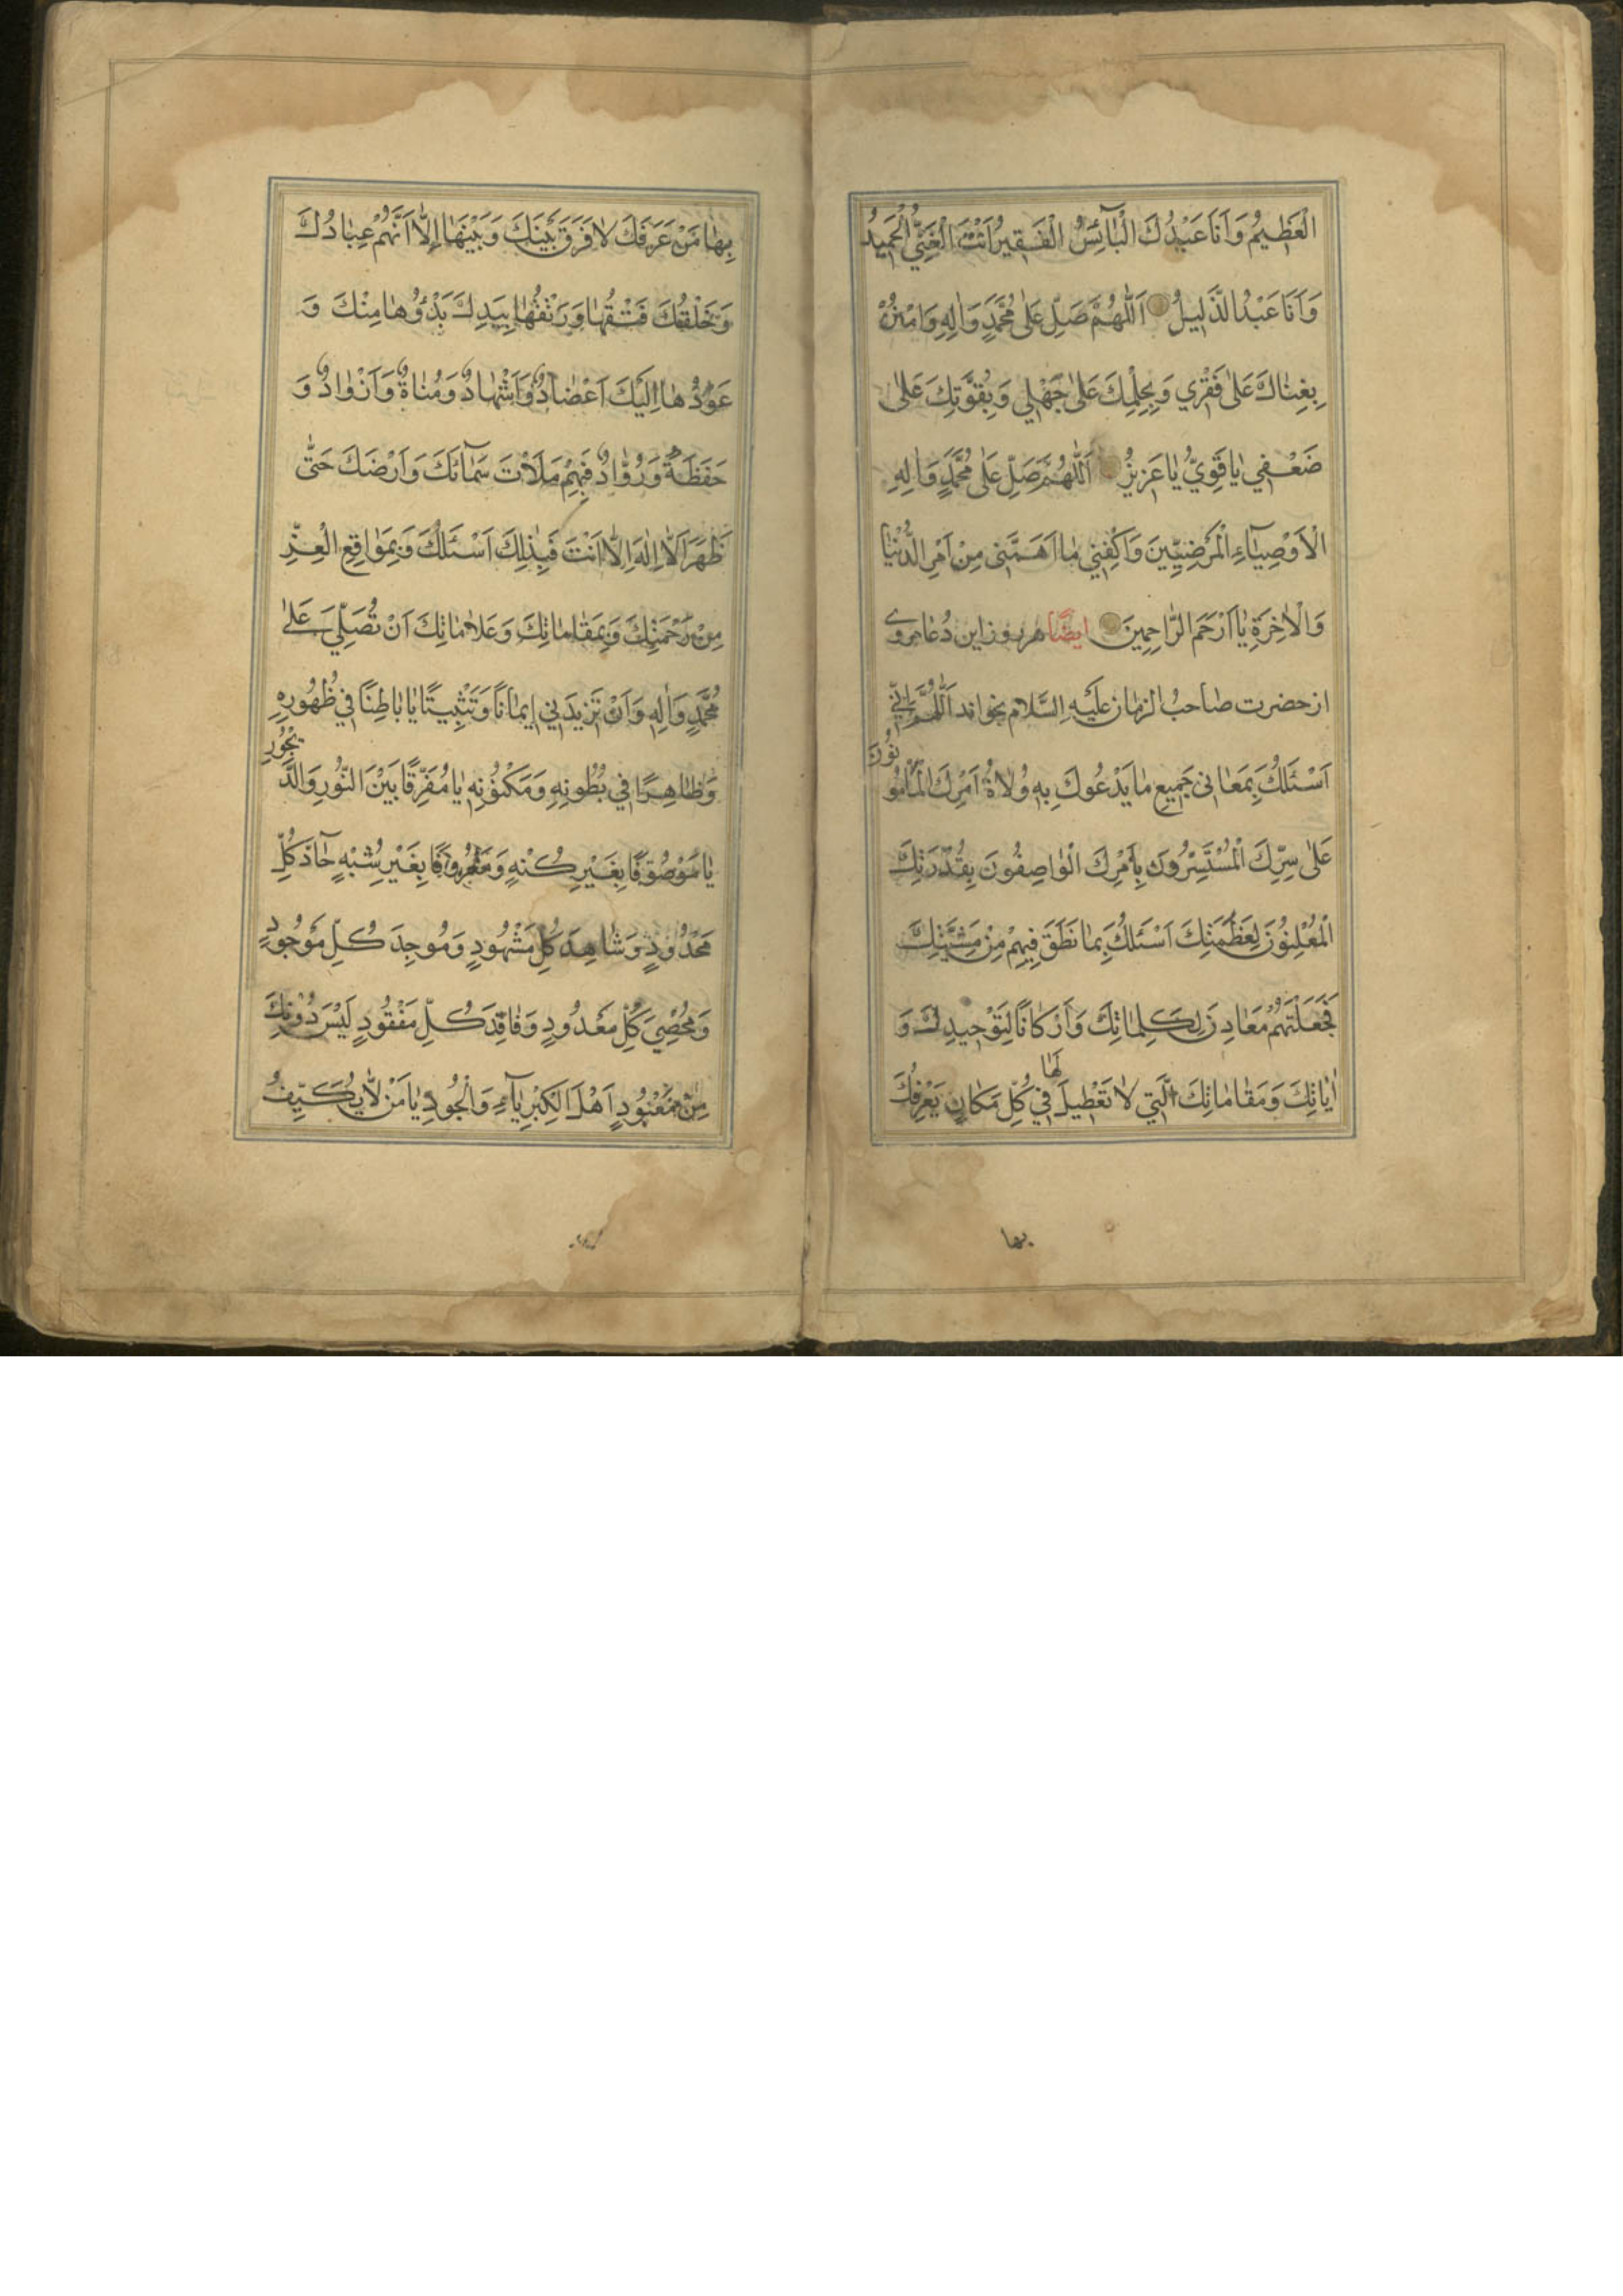 الْعَظِيمُ وَاَنَا عَبْدُكَ الْبَآئِسُ الْفَقِيرُ اَنْتَ الْغَنِيُّ الْحَمِيدُ
وَاَنَا عَبْدُ الذَّلِيلُ اَللّٰهُمَّ صَلِّ عَلٰى مُحَمَّدٍ وَاٰلِهِ وَامْنُنْ
بِغِنٰاكَ عَلٰى فَقْرِي وَبِحِلْمِكَ عَلٰى جَهْلِي وَبِقُوَّتِكَ عَلٰى
ضَعْفِي يٰا قَوِيُّ يٰا عَزِيزُ اَللّٰهُمَّ صَلِّ عَلٰى مُحَمَّدٍ وَاٰلِهِ
الْاَوْصِيٰآءِ الْمَرْضِيِّينَ وَاكْفِنِي مٰا اَهَمَّنِي مِنْ اَمْرِ الدُّنْيٰا
وَالْاٰخِرَةِ يٰا اَرْحَمَ الرّٰاحِمِينَ ايضًا هر روز اين دعا مروى
از حضرت صاحبُ الزمان عَلَيْهِ السَّلام بخواند اَللّٰهُمَّ اِنِّي
اَسْئَلُكَ بِمَعٰانِى جَمِيعِ مٰا يَدْعُوكَ بِهِ وُلٰاةُ اَمْرِكَ الْمَأْمُو
نُونَ
عَلٰى سِرِّكَ الْمُسْتَسِرُّونَ بِاَمْرِكَ الْوٰاصِفُونَ بِقُدْرَتِكَ
الْمُعْلِنُونَ لِعَظَمَتِكَ اَسْئَلُكَ بِمٰا نَطَقَ فِيهِمْ مِنْ مَشِيَّتِكَ
فَجَعَلْتَهُمْ مَعٰادِنَ لِكَلِمٰاتِكَ وَاَرْكٰانًا لِتَوْحِيدِكَ وَ
اٰيٰاتِكَ وَمَقٰامٰاتِكَ الَّتِي لٰا تَعْطِيلَ لَهٰا فِي كُلِّ مَكٰانٍ يَعْرِفُكَ
بها
بِهٰا مَنْ عَرَفَكَ لٰا فَرْقَ بَيْنَكَ وَبَيْنَهٰا اِلّٰا اَنَّهُمْ عِبٰادُكَ
وَخَلْقُكَ فَتْقُهٰا وَرَتْقُهٰا بِيَدِكَ بَدْؤُهٰا مِنْكَ وَ
عَوْدُهٰا اِلَيْكَ اَعْضٰادٌ وَاَشْهٰادٌ وَمُنٰاةٌ وَاَذْوٰادٌ وَ
حَفَظَةٌ وَرُوّٰادٌ فَبِهِمْ مَلَأْتَ سَمٰائَكَ وَاَرْضَكَ حَتّٰى
ظَهَرَ اَلّٰا اِلٰهَ اِلّٰا اَنْتَ فَبِذٰلِكَ اَسْئَلُكَ وَبِمَوٰاقِعِ الْعِزِّ
مِنْ رَحْمَتِكَ وَبِمَقٰامٰاتِكَ وَعَلٰامٰاتِكَ اَنْ تُصَلِّيَ عَلٰى
مُحَمَّدٍ وَاٰلِهِ وَاَنْ تَزِيدَنِي اِيمٰانًا وَتَثْبِيتًا يٰا بٰاطِنًا فِي ظُهُورِهِ
وَظٰاهِرًا فِي بُطُونِهِ وَمَكْنُونِهِ يٰا مُفَرِّقًا بَيْنَ النُّورِ وَالدَّ
يْجُورِ
يٰا مَوْصُوفًا بِغَيْرِ كُنْهٍ وَمَعْرُوفًا بِغَيْرِ شِبْهٍ حٰآدَّ كُلِّ
مَحْدُودٍ وَشٰاهِدَ كُلِّ مَشْهُودٍ وَمُوجِدَ كُلِّ مَوْجُودٍ
وَمُحْصِيَ كُلِّ مَعْدُودٍ وَفٰاقِدَ كُلِّ مَفْقُودٍ لَيْسَ دُونَكَ
مِنْ مَعْبُودٍ اَهْلَ الْكِبْرِيٰآءِ وَالْجُودِ يٰا مَنْ لٰا يُكَيَّفُ